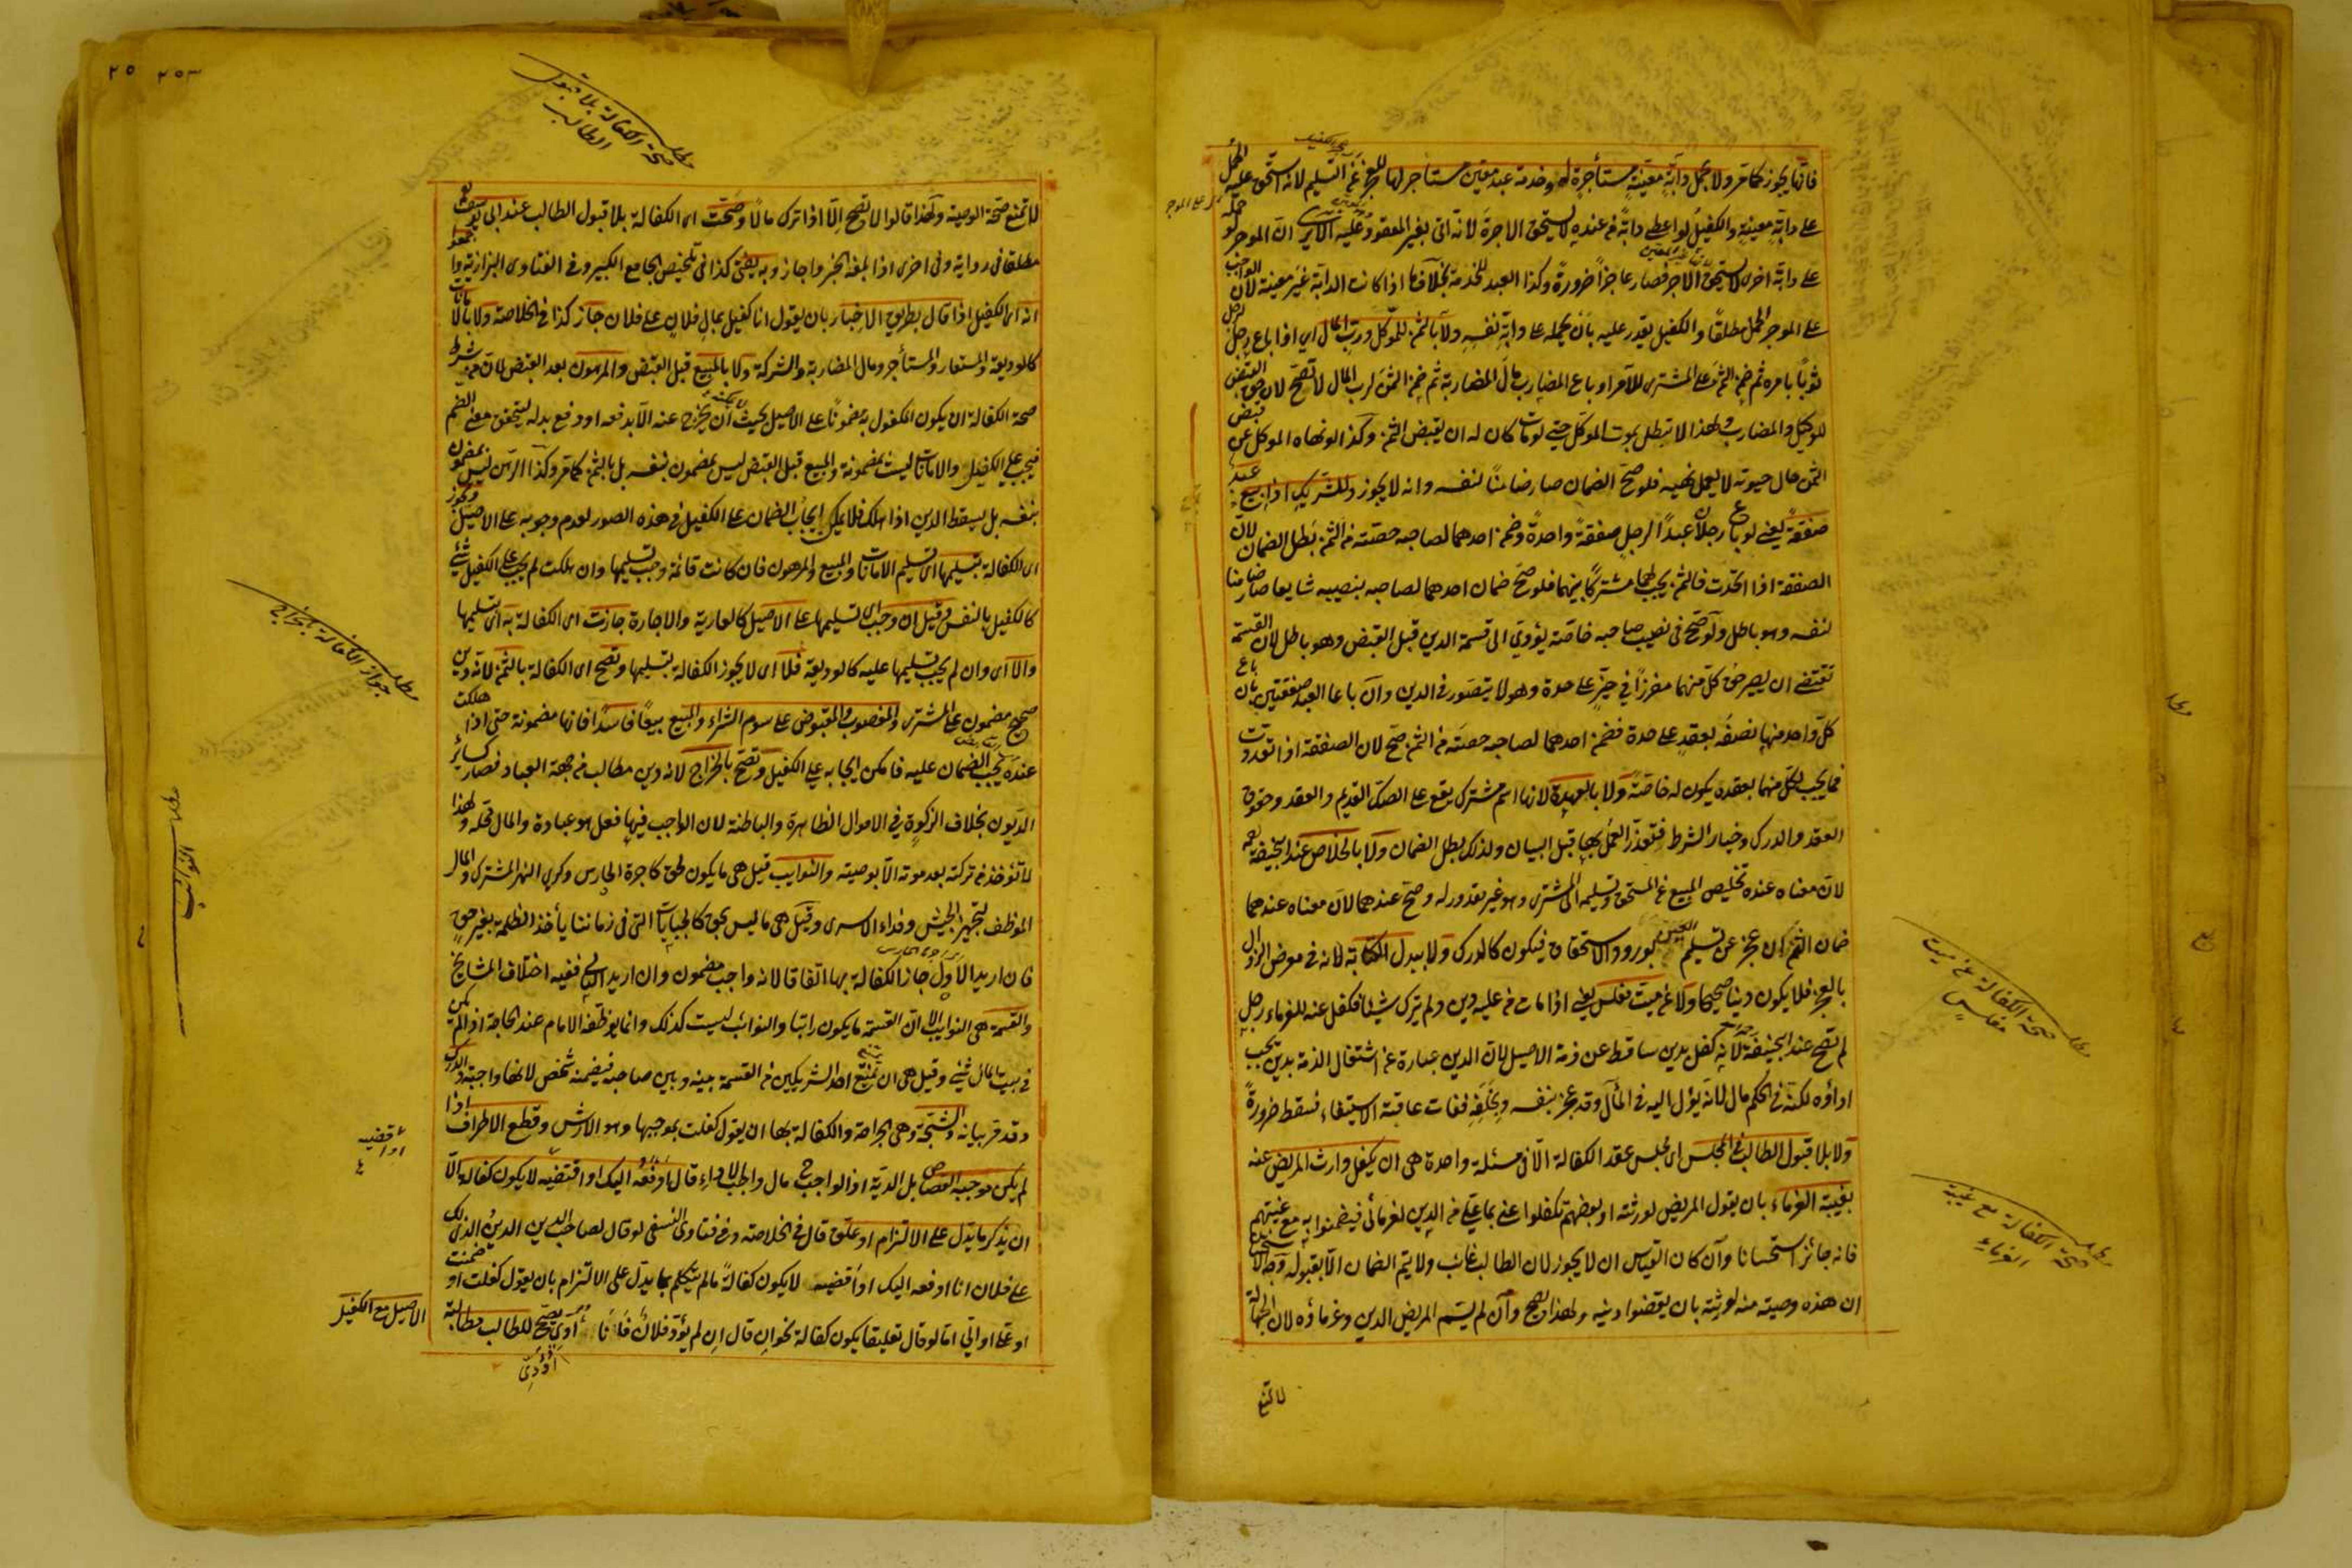 فانها يجوز كما مر ولا بحمل دابة معينة مستأجرة له وخدمة عبد معين مستاجر لها للعجز عن التسليم لانه استحق عليه الحمل
على دابة معينة والكفيل لو اعطى دابة من عنده لا يستحق الاجرة لانه اتى بغير المعقود عليه الا يرى ان الموجر لو حمله
على دابة اخرى لا يستحق الاجر فصار عاجزا ضرورة وكذا العبد للخدمة بخلاف ما اذا كانت الدابة غير معينة لان الواجب
على الموجر الحمل مطلقا والكفيل يقدر عليه بان يحمله على دابة نفسه ولا بالثمن للموكل ورب المال اي اذا باع رجل لرجل
ثوبا بامره ثم ضمن الثمن على المشترى للآمر او باع المضارب مال المضاربة ثم ضمن الثمن لرب المال لا تصح لان حق القبض
للوكيل والمضارب ولهذا لا تبطل بموت الموكل حتى لو مات كان له ان يقبض الثمن وكذا لو نهاه الموكل عن قبض
الثمن حال حيوته لا يعمل نهيه فلو صح الضمان صار ضامنا لنفسه وانه لا يجوز وللشريك اذا بيع عبد
صفقة يعني لو باع رجلان عبدا لرجل صفقة واحدة وضمن احدهما لصاحبه حصته من الثمن بطل الضمان لان
الصفقة اذا اتحدت فالثمن يجب لهما مشتركا بينهما فلو صح ضمان احدهما لصاحبه بنصيبه شايعا صار ضامنا
لنفسه وهو باطل ولو صح في نصيب صاحبه خاصة يؤدي الى قسمة الدين قبل القبض وهو باطل لان القسمة
تقتضي ان يصير حق كل منهما مفرزا في حيز على حدة وهو لا يتصور في الدين وان باعا العبد صفقتين بان باع
كل واحد منهما نصفه بعقد على حدة فضمن احدهما لصاحبه حصته من الثمن صح لان الصفقة اذا تعددت
فما يجب لكل منهما بعقده يكون له خاصة ولا بالعهدة لانها اسم مشترك يقع على الصك القديم والعقد وحقوق
العقد والدرك وخيار الشرط فتعذر العمل بها قبل البيان ولذلك بطل الضمان ولا بالخلاص عند ابي حنيفة
لان معناه عنده تخليص المبيع عن المستحق وتسليمه الى المشترى وهو غير مقدور له وصح عندهما لان معناه عندهما
ضمان الثمن ان عجز عن تسليم بورود الاستحقاق فيكون كالدرك ولا ببدل الكتابة لانه في معرض الزوال
بالعجز فلا يكون دينا صحيحا ولا عن ميت مفلس يعني اذا مات من عليه دين ولم يترك شيئا فكفل عنه للغرماء رجل
لم تصح عند ابي حنيفة لانه كفل بدين ساقط عن ذمة الاصيل لان الدين عبارة عن اشتغال الذمة بدين يجب
اداؤه لكنه في الحكم مال لانه يؤل اليه في المآل وقد عجز بنفسه وبخلفه ففات عاقبة الاستيفاء فسقط ضرورة
ولا بلا قبول الطالب في المجلس اى مجلس عقد الكفالة الا في مسئلة واحدة هى ان يكفل وارث المريض عنه
بغيبة الغرماء بان يقول المريض لورثته او بعضهم تكفلوا عنى بما علي من الدين لغرمائى فيضمنوا به مع غيبتهم
فانه جائز استحسانا وان كان القياس ان لا يجوز لان الطالب غائب ولا يتم الضمان الا بقبوله وجه الاستحسان
ان هذه وصية منه لورثته بان يقضوا دينه ولهذا يصح وان لم يسم المريض الدين وغرماؤه لان الجهالة
لا تمنع
صحة الكفالة عن ميت
مفلس
صحة الكفالة مع غيبة
الغرماء
صحة الكفالة بلا قبول
الطالب
لا تمنع صحة الوصية ولهذا قالوا لا تصح الا اذا ترك مالا وصحت اى الكفالة بلا قبول الطالب عند ابى يوسف
مطلقا فى رواية وفى اخرى اذا بلغه الخبر واجاز وبه يفتى كذا فى تلخيص الجامع الكبير وفى الفتاوى البزازية
انه اى الكفيل اذا قال بطريق الاخبار بان يقول انا كفيل بمال فلان على فلان جاز كذا في الخلاصة ولا بالامانات
كالوديعة والمستعار والمستأجر ومال المضاربة والشركة ولا بالمبيع قبل القبض والمرهون بعد القبض لان من شرط
صحة الكفالة ان يكون المكفول به مضمونا على الاصيل بحيث لا يمكنه ان يخرج عنه الا بدفعه او دفع بدله ليتحقق معنى الضم
فيجب على الكفيل والامانات ليست بمضمونة والمبيع قبل القبض ليس بمضمون بنفسه بل بالثمن كما مر وكذا الرهن ليس بمضمون
بنفسه بل يسقط الدين اذا هلك فلا يمكن ايجاب الضمان على الكفيل فى هذه الصور لعدم وجوبه على الاصيل وتجوز
اى الكفالة بتسليمها اى تسليم الامانات والمبيع والمرهون فان كانت قائمة وجب تسليمها وان هلكت لم يجب على الكفيل شئ
كالكفيل بالنفس وقيل ان وجب اى تسليمها على الاصيل كالعارية والاجارة جازت اى الكفالة به اى تسليمها
والا اى وان لم يجب تسليمها عليه كالوديعة فلا اى لا يجوز الكفالة بتسليمها وتصح اى الكفالة بالثمن لانه دين
صحيح مضمون على المشترى والمغصوب والمقبوض على سوم الشراء والمبيع بيعا فاسدا فانها مضمونة حتى اذا هلكت
عنده يجب الضمان عليه فامكن ايجابه على الكفيل وتصح بالخراج لانه دين مطالب من جهة العباد فصار كسائر
الديون بخلاف الزكوة في الاموال الظاهرة والباطنة لان الواجب فيها فعل هو عبادة والمال محله ولهذا
لا تؤخذ من تركته بعد موته الا بوصيته والنوايب قيل هى ما يكون بحق كاجرة الحارس وكرى النهر المشترك والمال
الموظف لتجهيز الجيش وفداء الاسرى وقيل هى ما ليس بحق كالجبايات التى فى زماننا يأخذ الظلمة بغير حق
فان اريد الاول جاز الكفالة بها اتفاقا لانه واجب مضمون وان اريد الثانى ففيه اختلاف المشايخ
والقسمة هى النوايب الا ان القسمة ما يكون راتبا والنوائب ليست كذلك وانما يوظفه الامام عند الحاجة اذا لم يكن
فى بيت المال شئ وقيل هى ان تمنع احد الشريكين من القسمة بينه وبين صاحبه فيضمنه شخص لانها واجبة والدرك
وقد مر بيانه والشجة وهى الجراحة والكفالة بها ان يقول كفلت بموجبها وهو الارش وقطع الاطراف اذا
لم يكن موجبه القصاص بل الدية اذ الواجب مال واجب الاداء قال ادفعه اليك او اقتضيه لا يكون كفالة الا
ان يذكر ما يدل على الالتزام او علق قال في الخلاصة وفي فتاوى النسفى لو قال لصاحب الدين الدين الذى لك
على فلان انا ادفعه اليك او اقضيه لا يكون كفالة ما لم يتكلم بما يدل على الالتزام بان يقول كفلت او ضمنت
او علي او الي اما لو قال تعليقا يكون كفالة نحو ان قال ان لم يؤد فلان فانا اؤدى يصح للطالب مطالبة
الاصيل مع الكفيل
أؤدى
جواز الكفالة بالخراج
النوائب
او اقضيه